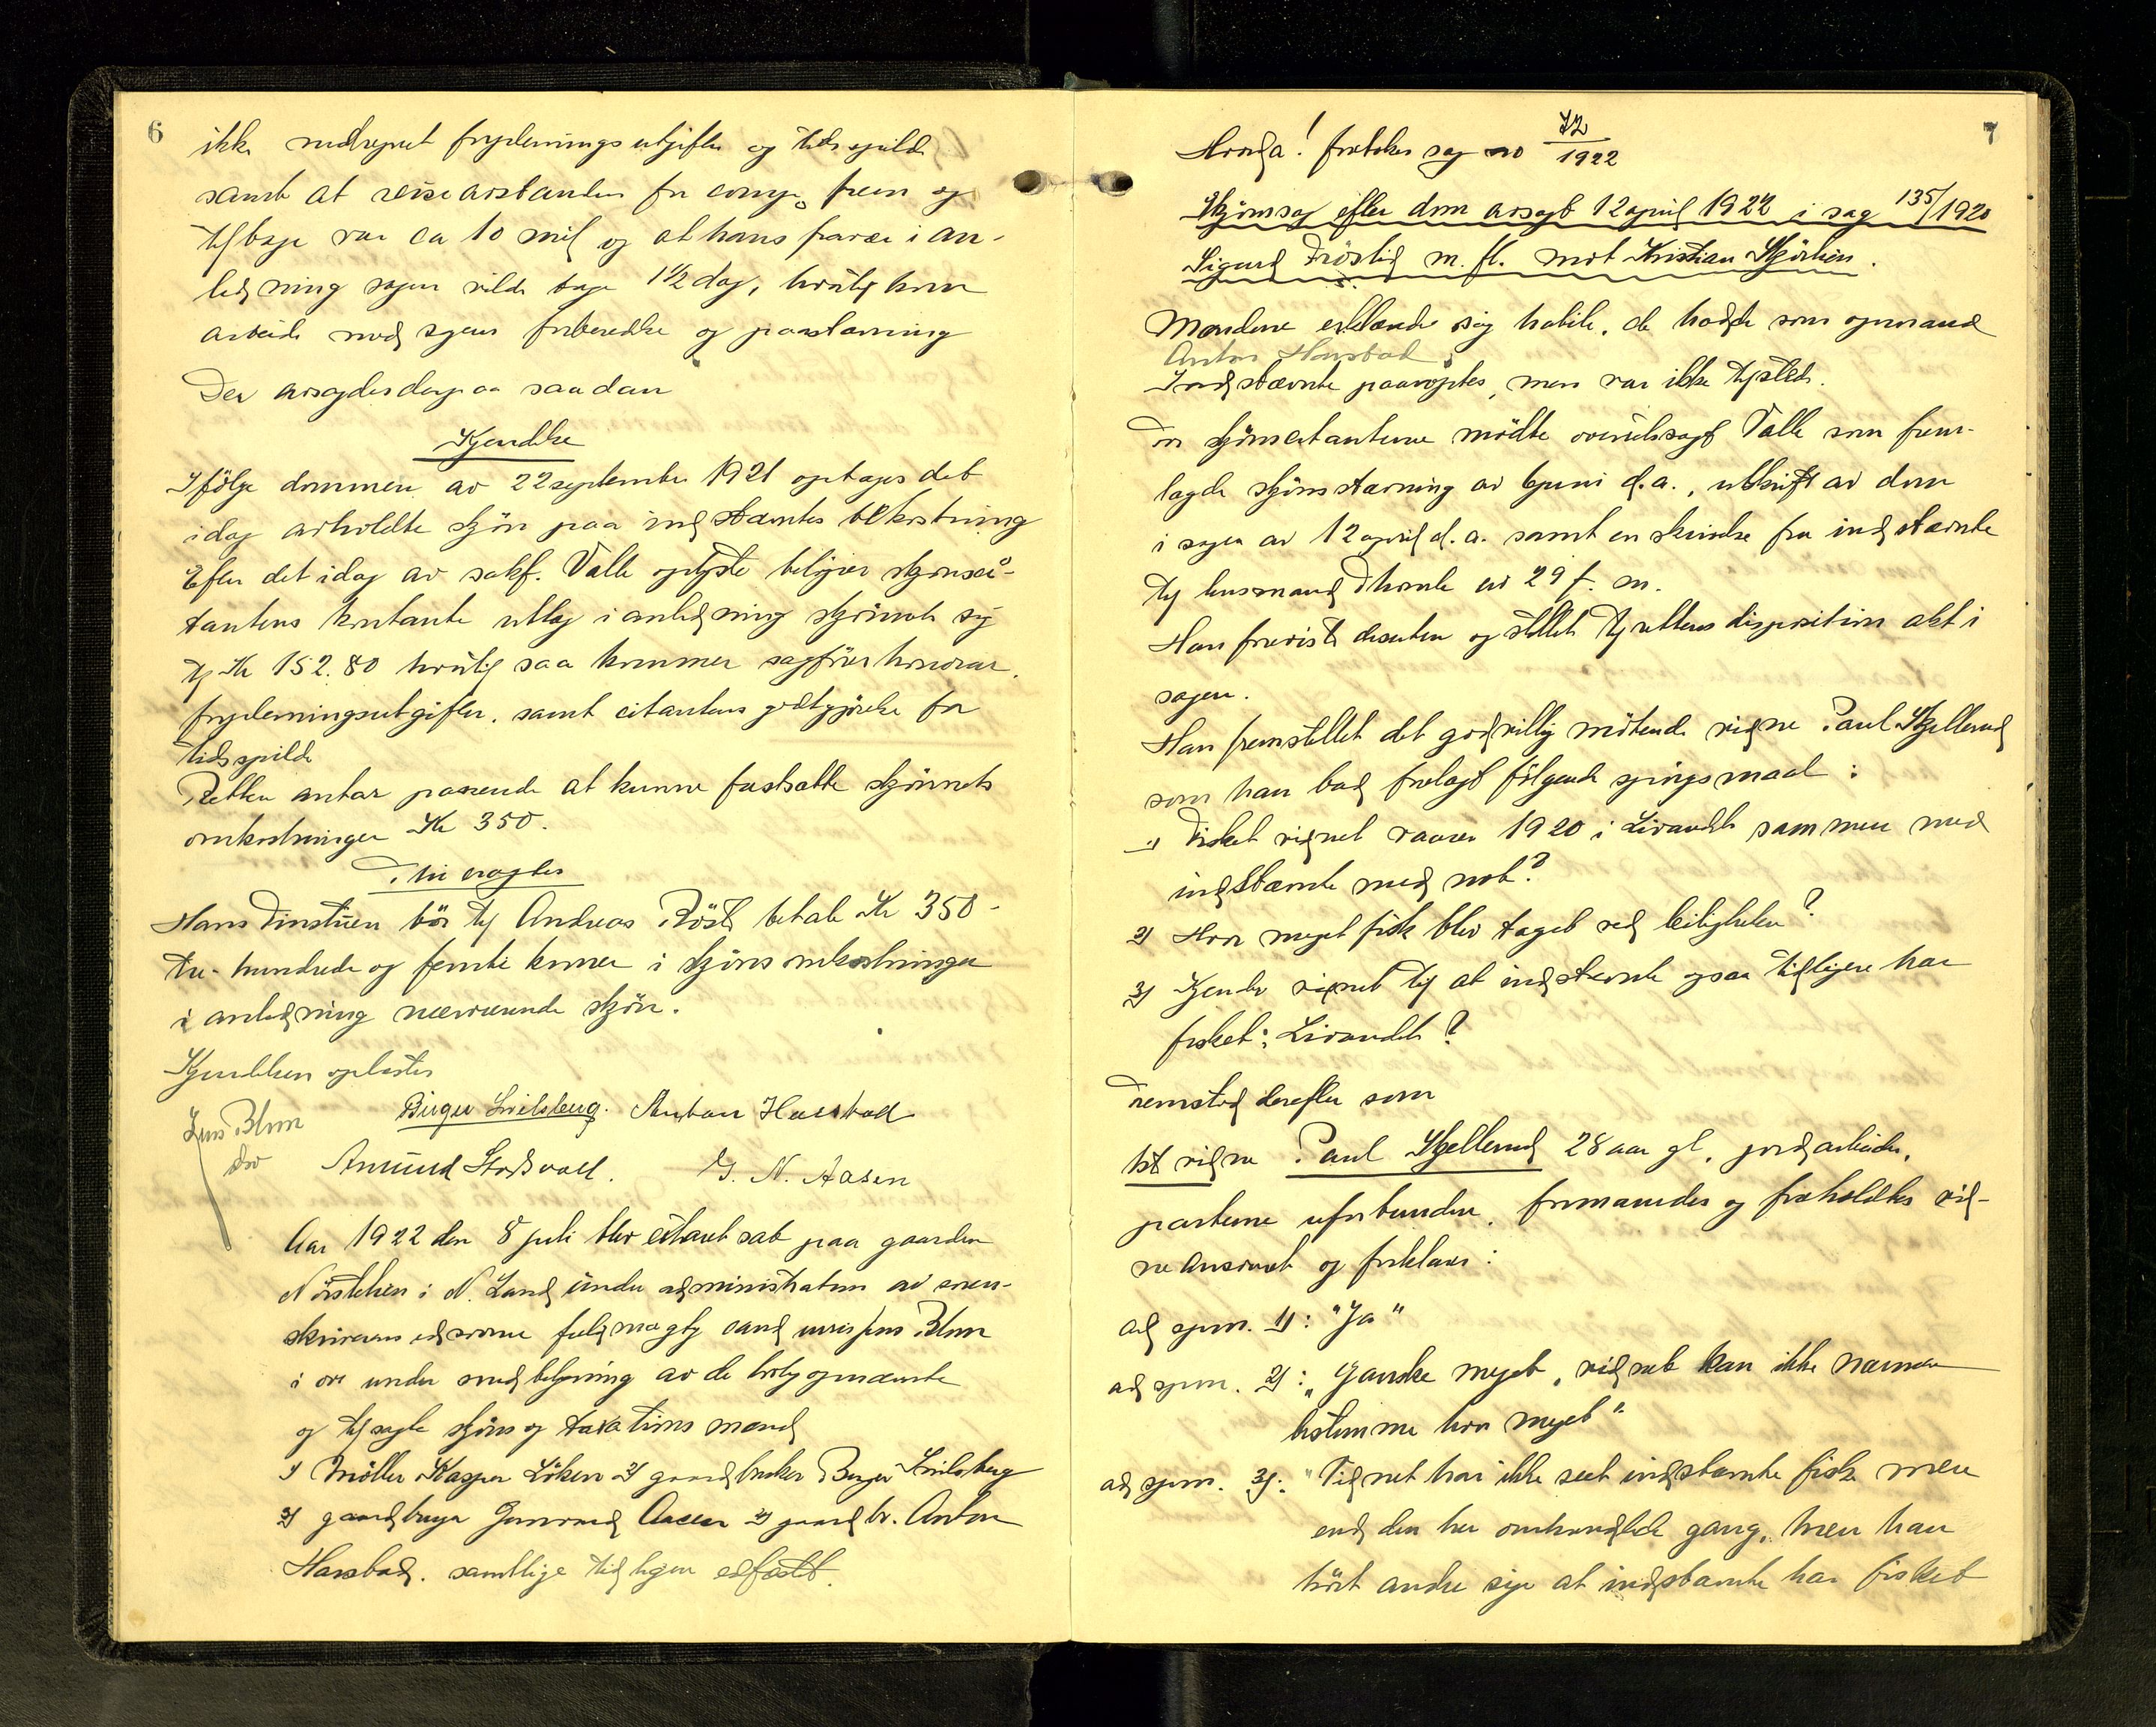 6
ikke medregnet fryplemingsutgifter og tidsspilde
samt at reiseavstanden for comp. frem og
tilbage var ca 10 mil og at hans fravær i an-
ledning sagen vilde tage 1 1/2 dag, hvortil kom
arbeide med sagens forberedelse og paastævning
Der avsagdes derpaa saadan
Kjendelse
Ifölge dommen av 22 september 1921 optages det
idag avholdte skjön paa indstævntes bekostning
Efter det idag av sakf. Valle oplyste belöper skjönsci-
tantens kontante utlæg i anledning skjönnet sig
til Kr 152.80 hvortil saa kommer sagförerhonorar,
fryplemingsutgifter, samt citantens godtgjörelse for
tidsspilde
Retten antar passende at kunne fastsætte skjönnets
omkostninger Kr 350.
Thi eragtes
Hans Tinstuen bör til Andreas Röste betale Kr 350 -
tre-hundrede og femti kroner i skjönsomkostninger
i anledning nærværende skjön.
Kjendelsen oplæstes
Jens Blom
Birger Smilsberg. Anton Haasbad
Amund Stadsvoll. G. N. Aasen
Aar 1922 den 8 juli blev extraret sat paa gaarden
Nörstelien i N. Land under administration av soren-
skriverens edsvorne fuldmægtig cand juris Jens Blom
i ovr under medbetjening av de hertil opnævnte
og tilsagte skjöns og taxationsmænd
1) Möller Kasper Löken 2) gaardbruker Birger Smilsberg
3) gaardbruger Gunvand Aasen 4) gaardbr. Anton
Haasbad. samtlige tidligere edfæstet.
7
Hvorda! foretokes sag no 72/1922
Skjönsag efter dom avsagt 12 april 1922 i sag 135/1920
Sigurd Fröslid m. fl. mot Kristian Skjörlien.
Mændene erklærede sig habile, de hadde som opmand
Anton Haasbad
Indstævnte paaroptes, men var ikke tilstede.
For skjönscitanterne mödte overretssagf Valle som frem-
lagde skjönsstævning av 6 juni d.a., utskrift av dom
i sagen av 12 april d.a. samt en skrivelse fra indstævnte
til lensmand Thomle av 29 f. m.
Han foreviste desuten og stillet til rettens disposition akt i
sagen.
Han fremstillet det godvillig mötende vidne Paul Skjellerud
som han bad forelagt fölgende spörgsmaal:
1) Fisket vidnet vaaren 1920 i Livandet sammen med
indstævnte med not?
2) Hvor meget fisk blev taget ved leiligheten?
3) Kjender vidnet til at indstævnte ogsaa tidligere har
fisket i Livandet?
Fremstod derefter som
1st vidne Paul Skjellerud 28 aar gl, jordarbeider,
parterne uforbunden, formanedes og foreholdtes vid-
neansvaret og forklarer:
ad spm. 1): "Ja"
ad spm. 2): "Ganske meget, vidnet kan ikke nærmere
bestemme hvor meget".
ad spm. 3): "Vidnet har ikke seet indstævnte fiske mere
end den her omhandlede gang, men han
hört andre sige at indstævnte har fisket